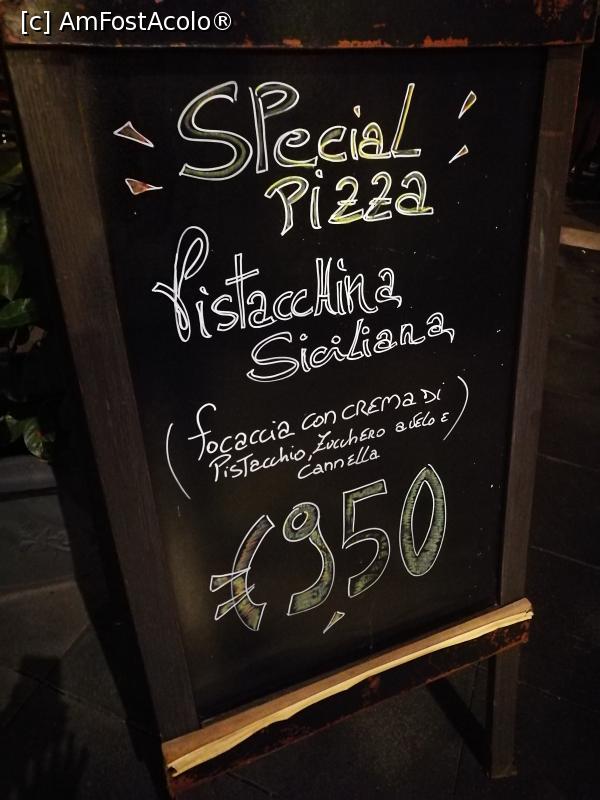 [c] AmFostAcolo®
Special
Pizza
Pistacchina
Siciliana
(focaccia con crema di
Pistacchio, Zucchero a velo e)
cannella
€9,50